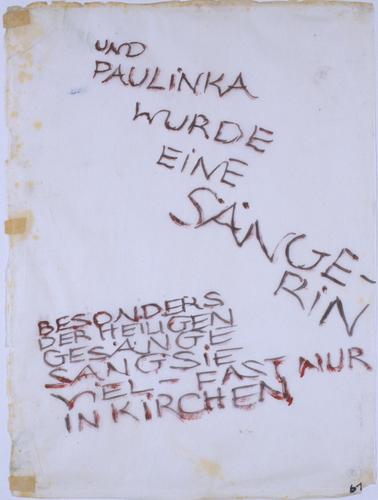 UND
PAULINKA
WURDE
EINE
SÄNGE-
RIN
BESONDERS
DER HEILIGEN
GESÄNGE
SANG SIE
VIEL - FAST NUR
IN KIRCHEN
61